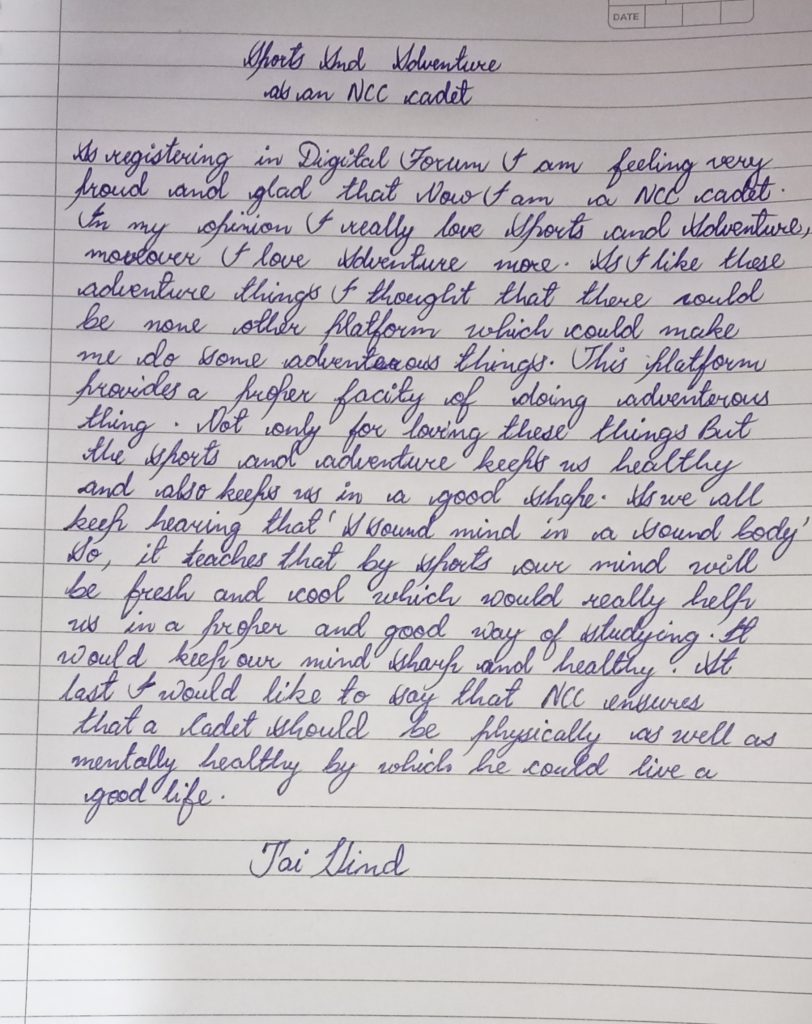 DATE
Sports And Adventure
as an NCC cadet
As registering in Digital Forum I am feeling very
proud and glad that Now I am a NCC cadet.
In my opinion I really love Sports and Adventure,
moreover I love Adventure more. As I like these
adventure things I thought that there could
be none other platform which could make
me do some adventerous things. This platform
provides a proper facity of doing adventerous
thing. Not only for loving these things But
the sports and adventure keeps us healthy
and also keeps us in a good shape. As we all
keep hearing that 'A sound mind in a sound body'
So, it teaches that by sports our mind will
be fresh and cool which would really help
us in a proper and good way of studying. It
would keep our mind sharp and healthy. At
last I would like to say that NCC ensures
that a Cadet should be physically as well as
mentally healthy by which he could live a
good life.
Jai Hind